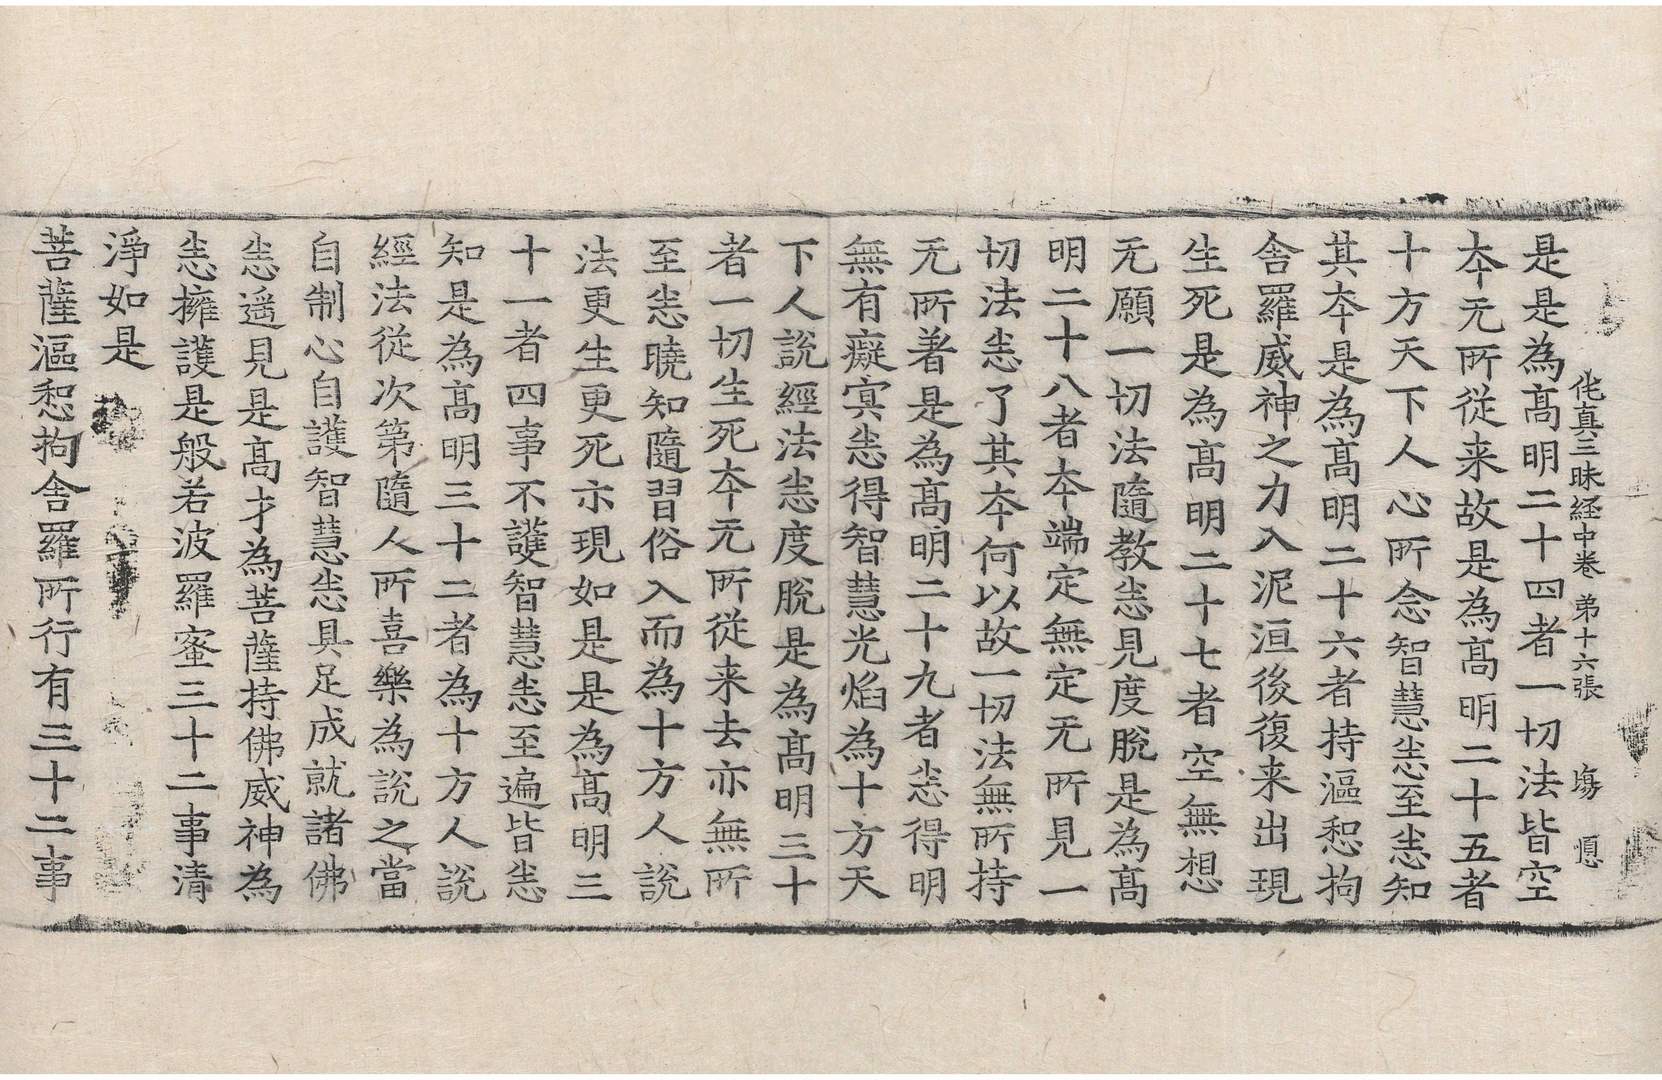 佗真三昧経中巻 第十六張 塲 愪
是是為高明二十四者一切法皆空
本无所從来故是為高明二十五者
十方天下人心所念智慧悉至悉知
其本是為高明二十六者持漚惒拘
舍羅威神之力入泥洹後復来出現
生死是為高明二十七者空無想
无願一切法隨教悉見度脫是為高
明二十八者本端定無定无所見一
切法悉了其本何以故一切法無所持
无所著是為高明二十九者悉得明
無有癡冥悉得智慧光焰為十方天
下人說經法悉度脫是為高明三十
者一切生死本无所從来去亦無所
至悉曉知隨習俗入而為十方人說
法更生更死示現如是是為高明三
十一者四事不護智慧悉至遍皆悉
知是為高明三十二者為十方人說
經法從次第隨人所喜樂為說之當
自制心自護智慧悉具足成就諸佛
悉遥見是高才為菩薩持佛威神為
悉擁護是般若波羅蜜三十二事清
淨如是
菩薩漚惒拘舍羅所行有三十二事